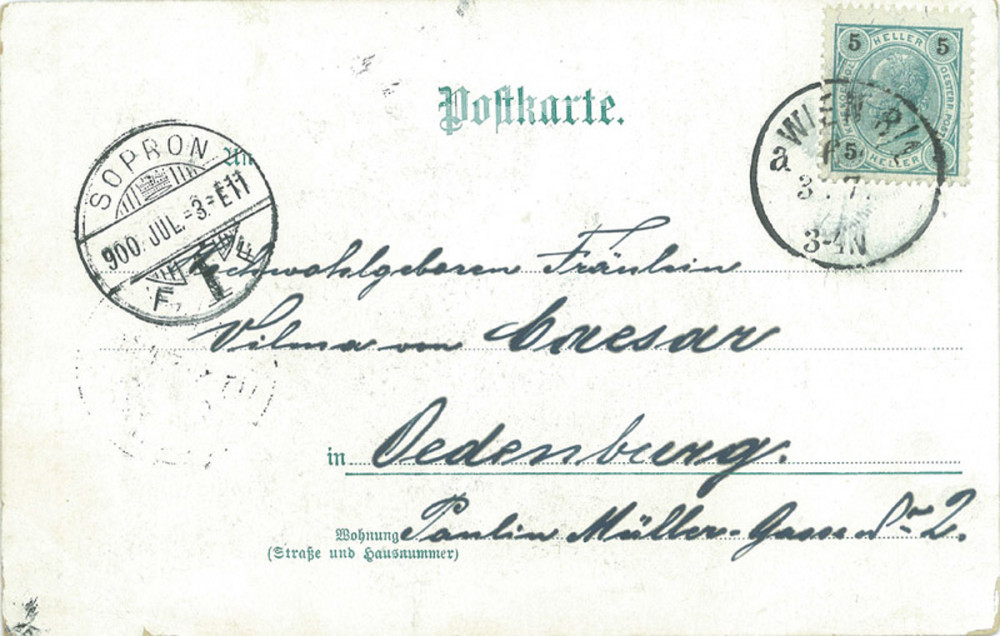 Postkarte.
5 HELLER 5
5 HELLER
WIEN 8/1
a
3 7
3-4N
SOPRON
900 JUL.-3.-E11
An
Hochwohlgeboren Fräulein
Vilma von Caesar
in Oedenburg.
Wohnung Paulin Müller-Gasse Nr 2.
(Straße und Hausnummer)